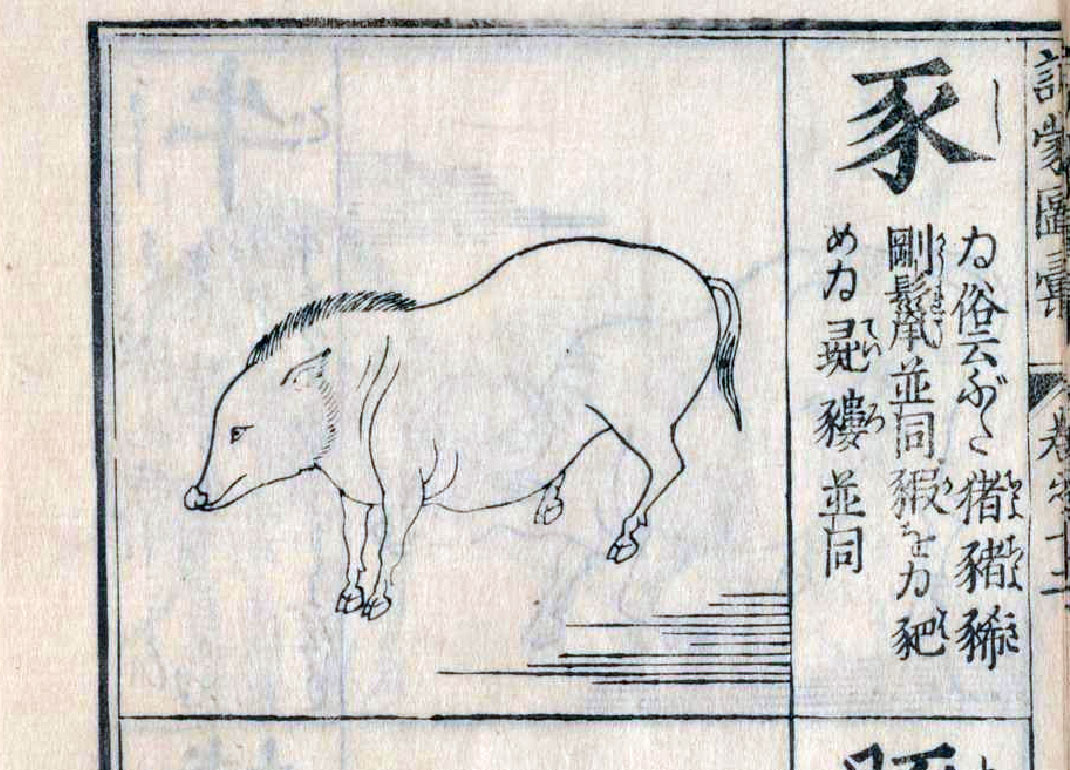 訓蒙圖彙 卷之十二
豕
し
ゐ俗云ぶた 猪 豬 豨
剛鬣並同 豭をゐ 豝
めゐ 彘 䝏 並同